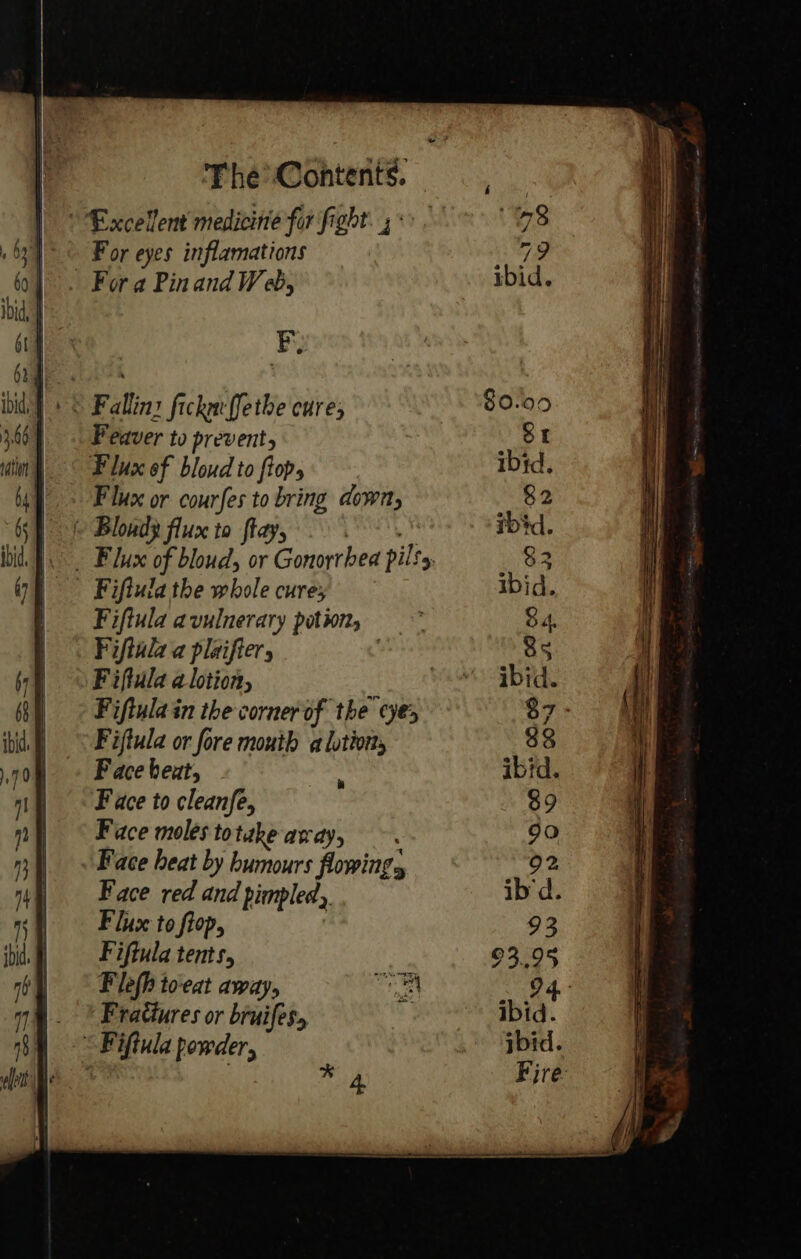 The Contents.
Excellent medicine for ſight 78
For eyes inflamations 79
For a Pin and Web, ibid.
F.
Falling ſickneſſe the cure, 80.
Feaver to prevent, 81
Flux of bloud to ſtop, ibid.
Flux or courſes to bring down, 82
Bloudy flux to ſtay, ibid.
Flux of bloud, or Gonorrhea pills, 83
Fiſtula the whole cure, ibid.
Fiſtula a vulnerary potion, 84
Fiſtula a plaiſter, 85
Fiſtula a lotion, ibid.
Fiſtula in the corner of the eye, 87
Fiſtula or ſore mouth a lotion, 88
Face heat, ibid.
Face to cleanſe, 89
Face moles to take away, 90
Face heat by humours flowing, 92
Face red and pimpled, ibid.
Flux to ſtop, 93
Fiſtula tents, 93.95
Fleſh to eat away, 94
Fractures or bruiſes, ibid.
Fiſtula powder, ibid.
* 4 Fire
63
60
ibid.
61
62
ibid.
3.66
64
65
ibid.
67
67
68
ibid.
70
71
72
73
74
75
ibid.
76
77
78